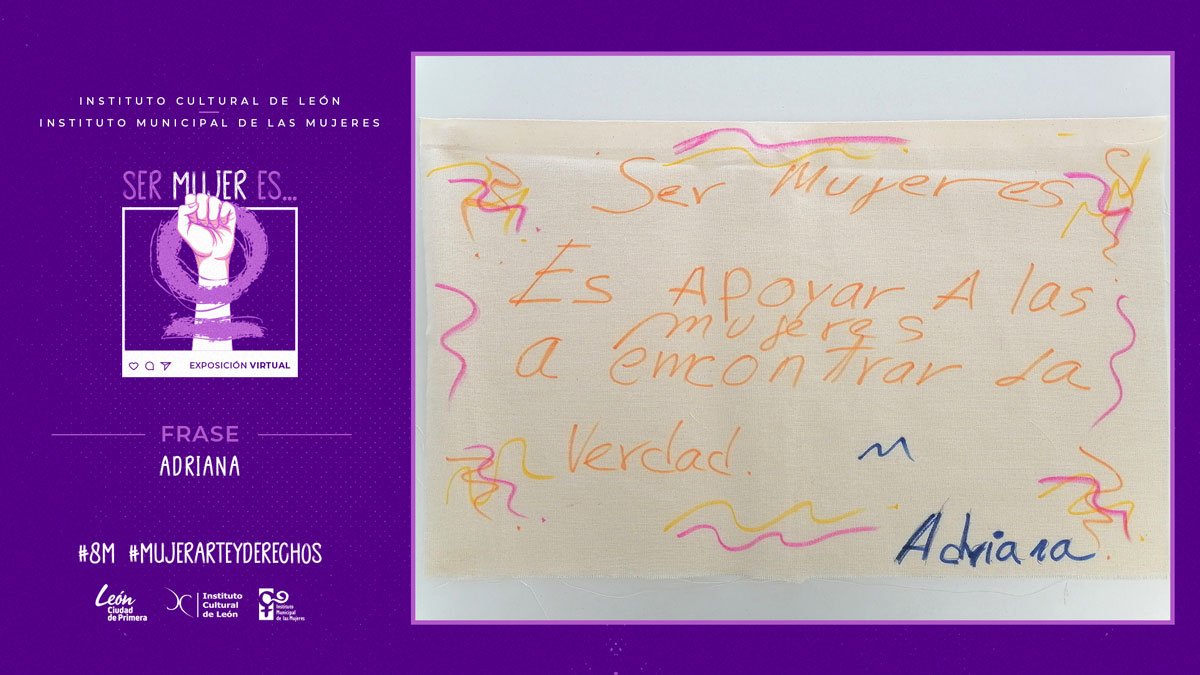 INSTITUTO CULTURAL DE LEÓN
INSTITUTO MUNICIPAL DE LAS MUJERES
SER MUJER ES...
EXPOSICIÓN VIRTUAL
FRASE
ADRIANA
#8M #MUJERARTEYDERECHOS
León
Ciudad
de Primera
Instituto
Cultural
de León
Instituto
Municipal
de las Mujeres
Ser Mujer es
Es Apoyar A las
mujeres
a encontrar La
Verdad.
Adriana